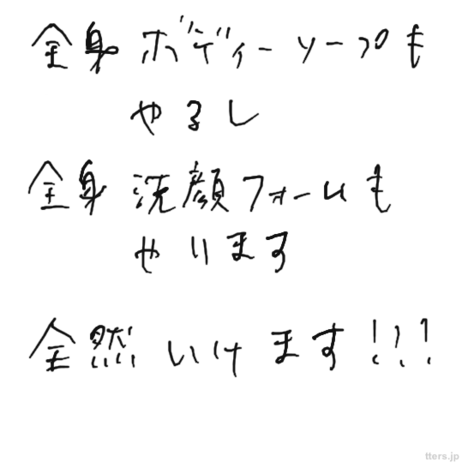 全身ボディーソープも
やるし
全身洗顔フォームも
やります
全然いけます!!!
tters.jp